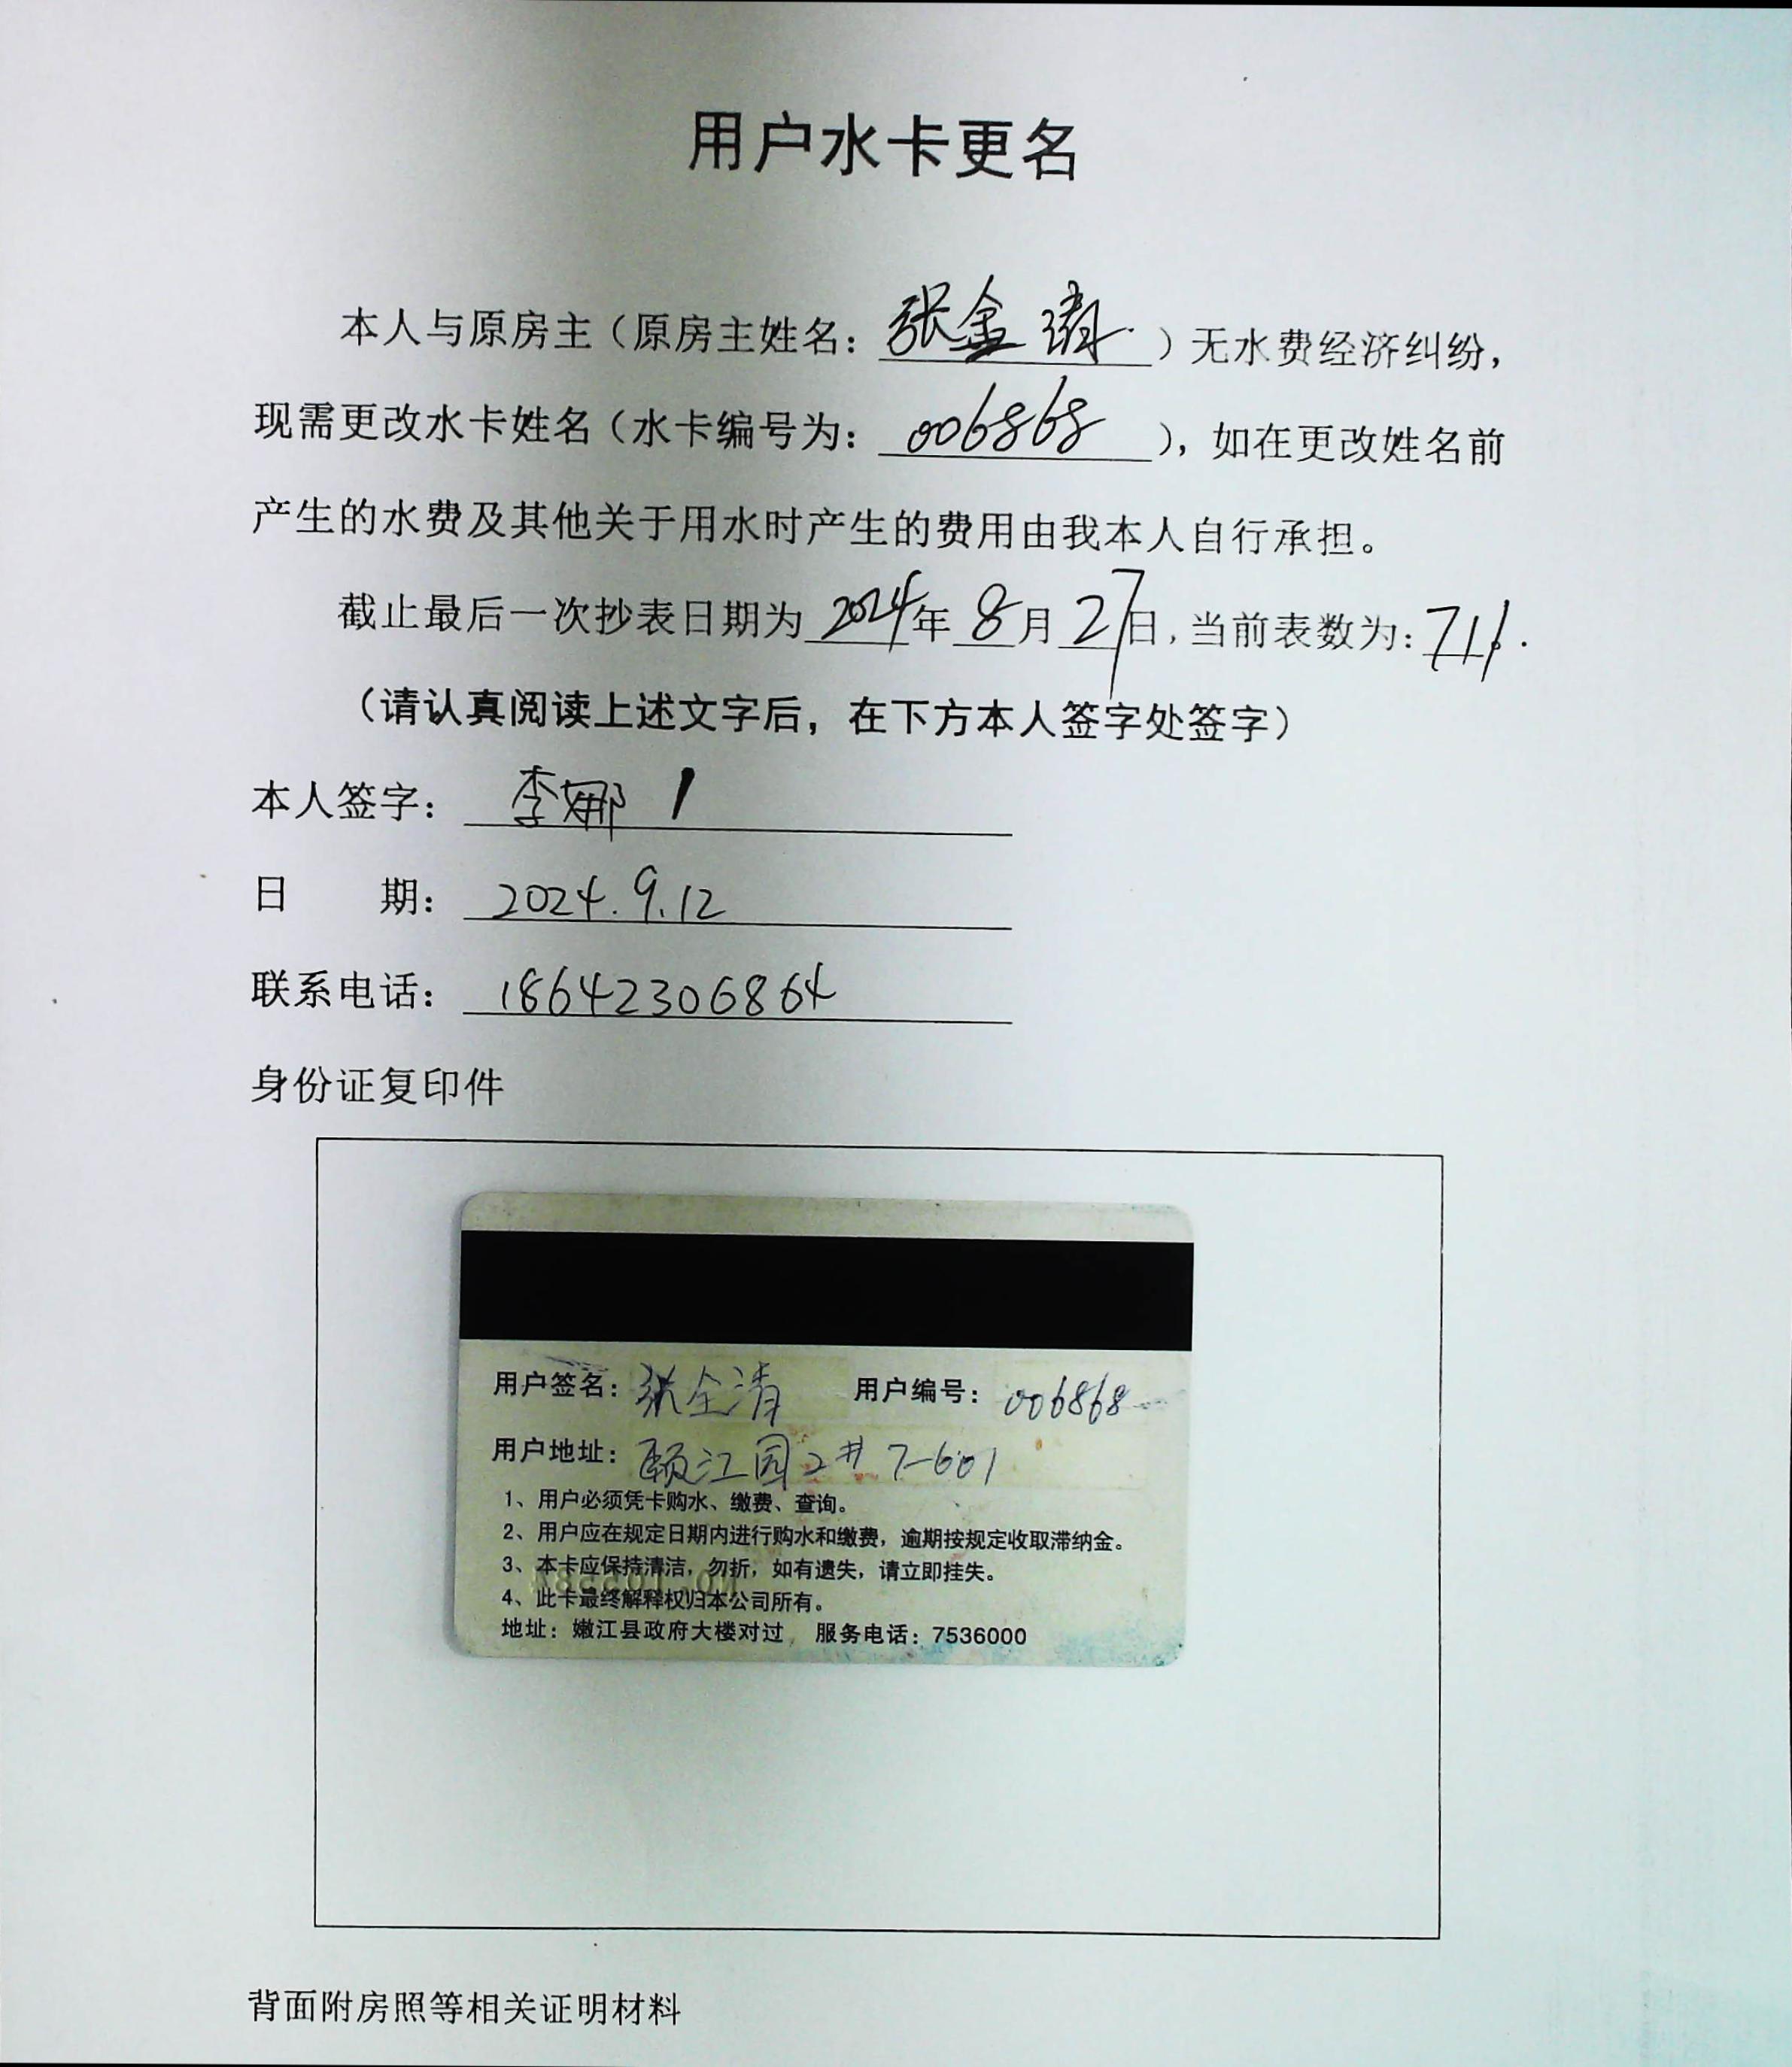 用户水卡更名
本人与原房主（原房主姓名：张金清）无水费经济纠纷，
现需更改水卡姓名（水卡编号为：006868），如在更改姓名前
产生的水费及其他关于用水时产生的费用由我本人自行承担。
截止最后一次抄表日期为2024年8月27日，当前表数为：711。
（请认真阅读上述文字后，在下方本人签字处签字）
本人签字：李娜
日 期：2024.9.12
联系电话：18642306864
身份证复印件
用户签名：张全清 用户编号：006868
用户地址：颐江园2# 7-601
1、用户必须凭卡购水、缴费、查询。
2、用户应在规定日期内进行购水和缴费，逾期按规定收取滞纳金。
3、本卡应保持清洁，勿折，如有遗失，请立即挂失。
4、此卡最终解释权归本公司所有。
地址：嫩江县政府大楼对过 服务电话：7536000
背面附房照等相关证明材料